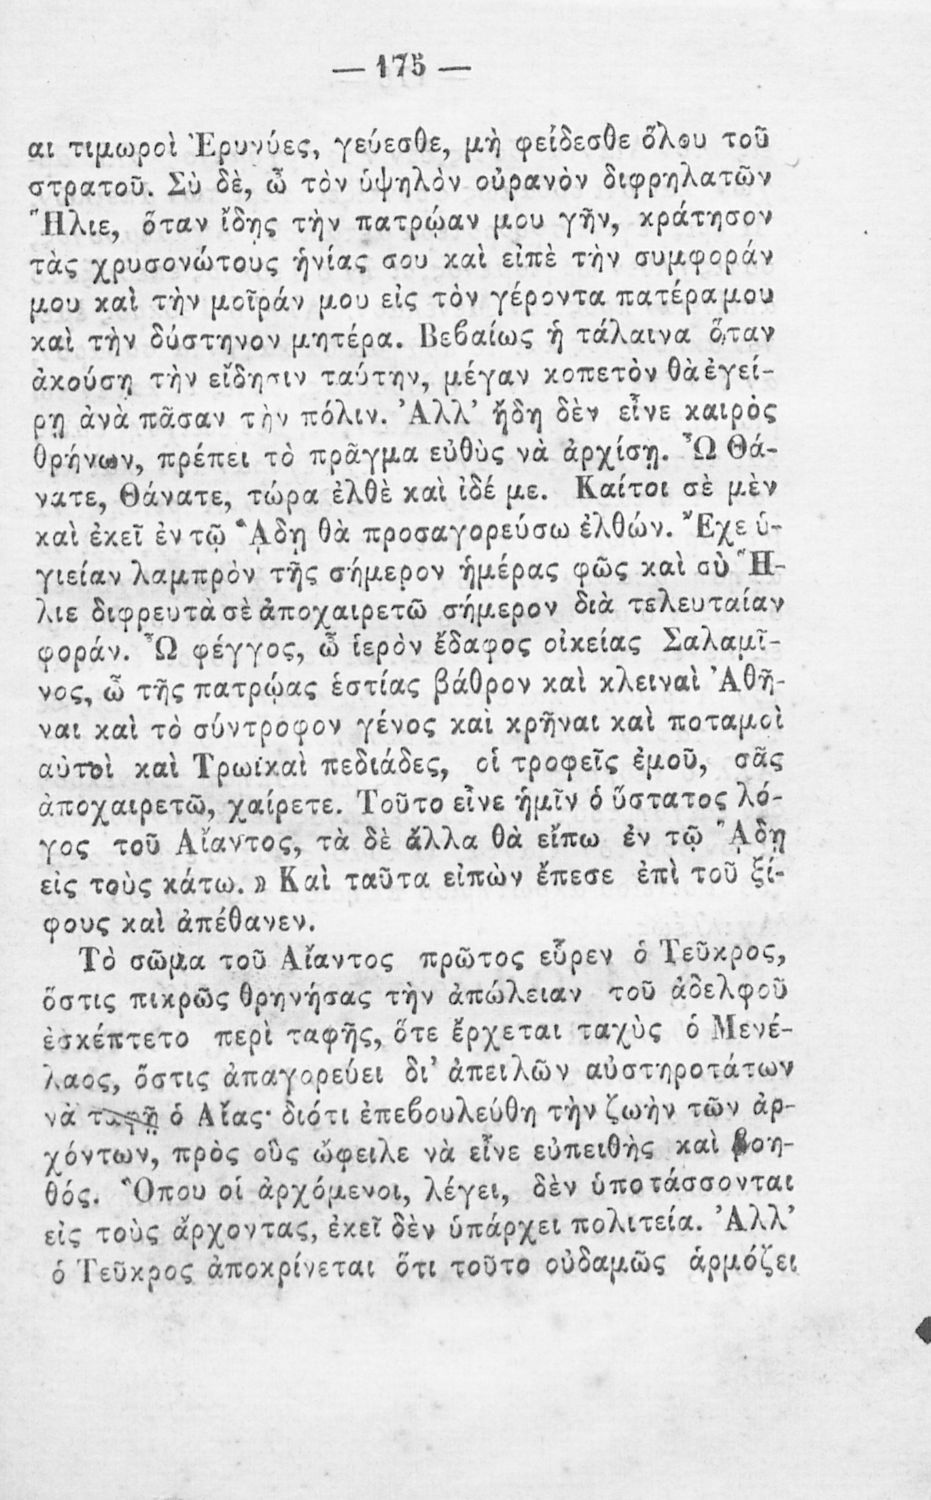 — 175 —
αι τιμωροὶ Ἐρυνύες, γεύεσθε, μὴ φείδεσθε ὅλου τοῦ
στρατοῦ. Σὺ δὲ, ὦ τὸν ὑψηλὸν οὐρανὸν διφρηλατῶν
Ἥλιε, ὅταν ἴδῃς τὴν πατρῴαν μου γῆν, κράτησον
τὰς χρυσονώτους ἡνίας σου καὶ εἰπὲ τὴν συμφοράν
μου καὶ τὴν μοῖράν μου εἰς τὸν γέροντα πατέρα μου
καὶ τὴν δύστηνον μητέρα. Βεβαίως ἡ τάλαινα ὅταν
ἀκούσῃ τὴν εἴδησιν ταύτην, μέγαν κοπετὸν θὰ ἐγεί-
ρῃ ἀνὰ πᾶσαν τὴν πόλιν. Ἀλλ’ ἤδη δὲν εἶνε καιρὸς
θρήνων, πρέπει τὸ πρᾶγμα εὐθὺς νὰ ἀρχίσῃ. Ὦ Θά-
νατε, Θάνατε, τώρα ἐλθὲ καὶ ἰδέ με. Καίτοι σὲ μὲν
καὶ ἐκεῖ ἐν τῷ ᾍδῃ θὰ προσαγορεύσω ἐλθών. Ἔχε ὑ-
γιείαν λαμπρὸν τῆς σήμερον ἡμέρας φῶς καὶ σὺ Ἥ-
λιε διφρευτὰ σὲ ἀποχαιρετῶ σήμερον διὰ τελευταίαν
φοράν. Ὦ φέγγος, ὦ ἱερὸν ἔδαφος οἰκείας Σαλαμῖ-
νος, ὦ τῆς πατρῴας ἑστίας βάθρον καὶ κλειναὶ Ἀθῆ-
ναι καὶ τὸ σύντροφον γένος καὶ κρῆναι καὶ ποταμοὶ
αὐτοὶ καὶ Τρωϊκαὶ πεδιάδες, οἱ τροφεῖς ἐμοῦ, σᾶς
ἀποχαιρετῶ, χαίρετε. Τοῦτο εἶνε ἡμῖν ὁ ὕστατος λό-
γος τοῦ Αἴαντος, τὰ δὲ ἄλλα θὰ εἴπω ἐν τῷ ᾍδῃ
εἰς τοὺς κάτω. » Καὶ ταῦτα εἰπὼν ἔπεσε ἐπὶ τοῦ ξί-
φους καὶ ἀπέθανεν.
Τὸ σῶμα τοῦ Αἴαντος πρῶτος εὗρεν ὁ Τεῦκρος,
ὅστις πικρῶς θρηνήσας τὴν ἀπώλειαν τοῦ ἀδελφοῦ
ἐσκέπτετο περὶ ταφῆς, ὅτε ἔρχεται ταχὺς ὁ Μενέ-
λαος, ὅστις ἀπαγορεύει δι’ ἀπειλῶν αὐστηροτάτων
νὰ ταφῇ ὁ Αἴας· διότι ἐπεβουλεύθη τὴν ζωὴν τῶν ἀρ-
χόντων, πρὸς οὓς ὤφειλε νὰ εἶνε εὐπειθὴς καὶ βοη-
θός. Ὅπου οἱ ἀρχόμενοι, λέγει, δὲν ὑποτάσσονται
εἰς τοὺς ἄρχοντας, ἐκεῖ δὲν ὑπάρχει πολιτεία. Ἀλλ’
ὁ Τεῦκρος ἀποκρίνεται ὅτι τοῦτο οὐδαμῶς ἁρμόζει